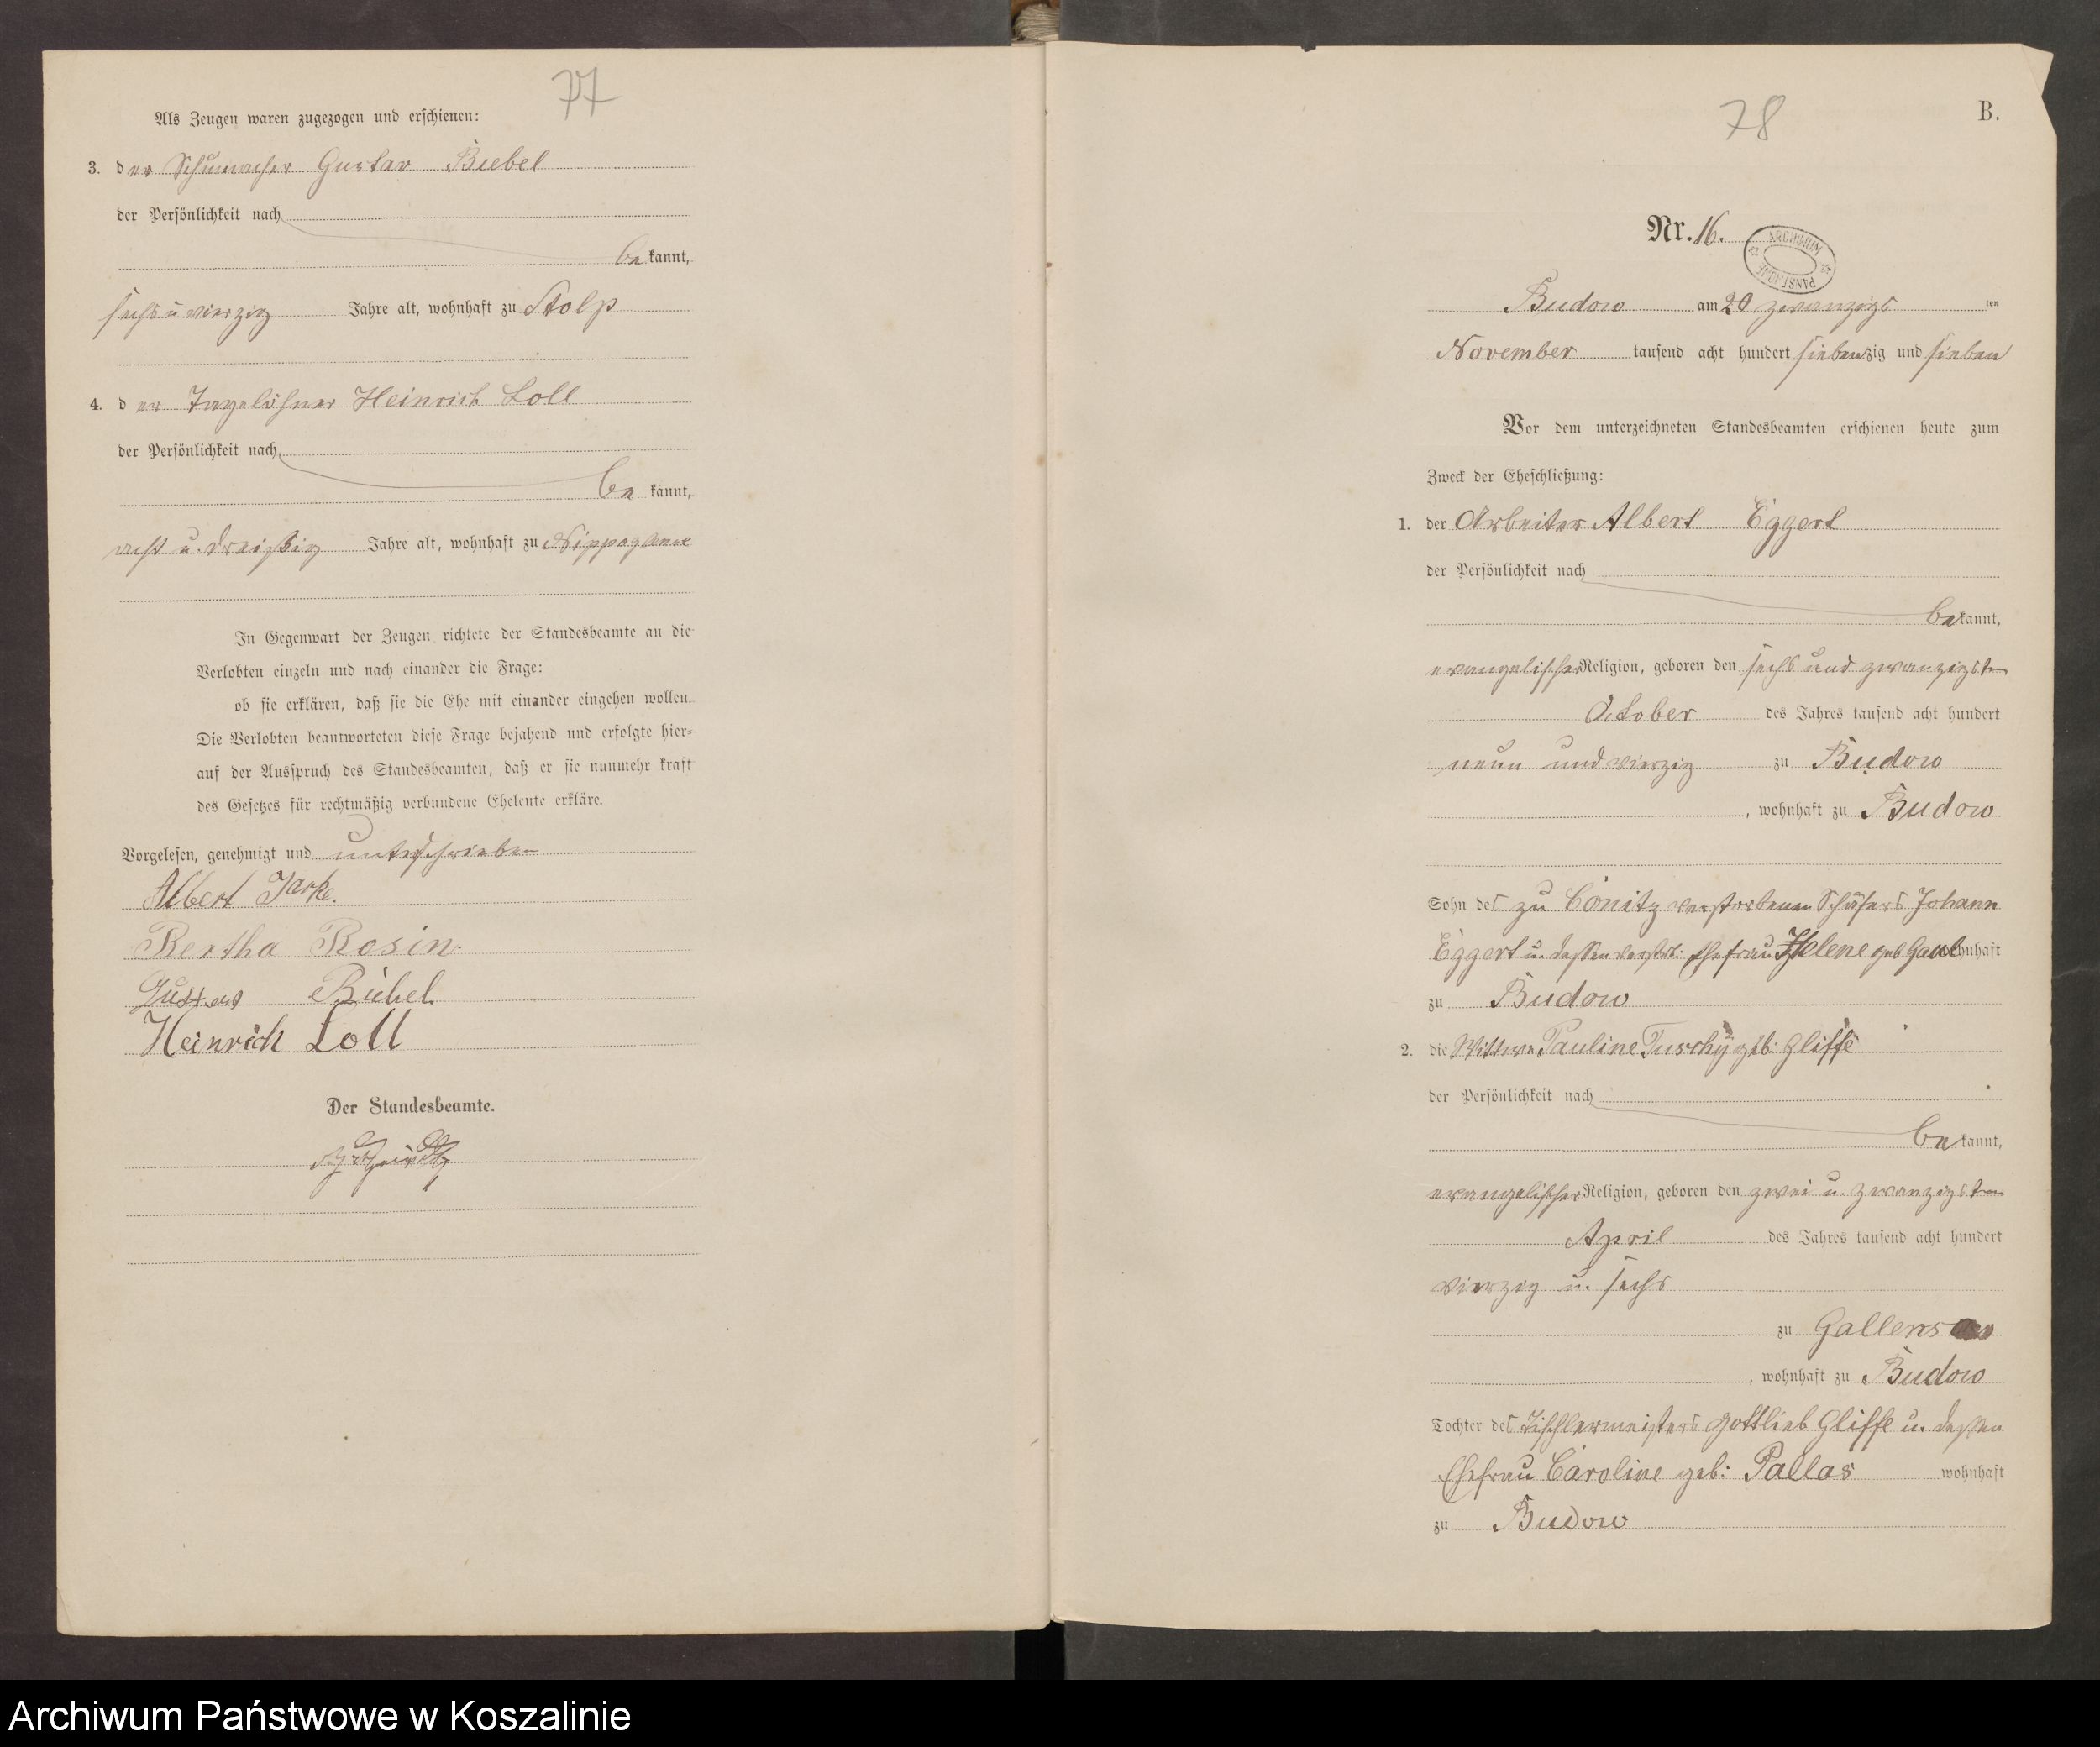 77
Als Zeugen waren zugezogen und erschienen:
3. der Schumacher Gustav Biebel
der Persönlichkeit nach
bekannt,
sechs u vierzig Jahre alt, wohnhaft zu Stolp
4. der Tagelöhner Heinrich Loll
der Persönlichkeit nach
be kannt,
acht u. dreißig Jahre alt, wohnhaft zu Nippoglense
In Gegenwart der Zeugen richtete der Standesbeamte an die
Verlobten einzeln und nach einander die Frage:
ob sie erklären, daß sie die Ehe mit einander eingehen wollen.
Die Verlobten beantworteten diese Frage bejahend und erfolgte hier-
auf der Ausspruch des Standesbeamten, daß er sie nunmehr kraft
des Gesetzes für rechtmäßig verbundene Eheleute erkläre.
Vorgelesen, genehmigt und unterschrieben
Albert Jarke.
Bertha Rosin.
Gustav Biebel
Heinrich Loll
Der Standesbeamte.
78
B.
Nr. 16.
ARCHIWUM PAŃSTWOWE
Budow am 20 zwanzigsten
November tausend acht hundert siebenzig und sieben
Vor dem unterzeichneten Standesbeamten erschienen heute zum
Zweck der Eheschließung:
1. der Arbeiter Albert Eggert
der Persönlichkeit nach
bekannt,
evangelischer Religion, geboren den sechs und zwanzigsten
October des Jahres tausend acht hundert
neun und vierzig zu Budow
, wohnhaft zu Budow
Sohn des zu Conitz verstorbenen Schäfers Johann
Eggert u. dessen verstb: Ehefrau Helene geb Gaul wohnhaft
zu Budow
2. die Wittwe Pauline Tuschy geb: Gliffe
der Persönlichkeit nach
be kannt,
evangelischer Religion, geboren den zwei u. zwanzigsten
April des Jahres tausend acht hundert
vierzig u. sechs
zu Gallensow
, wohnhaft zu Budow
Tochter des Tischlermeisters Gottlieb Gliffe u. dessen
Ehefrau Caroline geb: Pallas wohnhaft
zu Budow
Archiwum Państwowe w Koszalinie